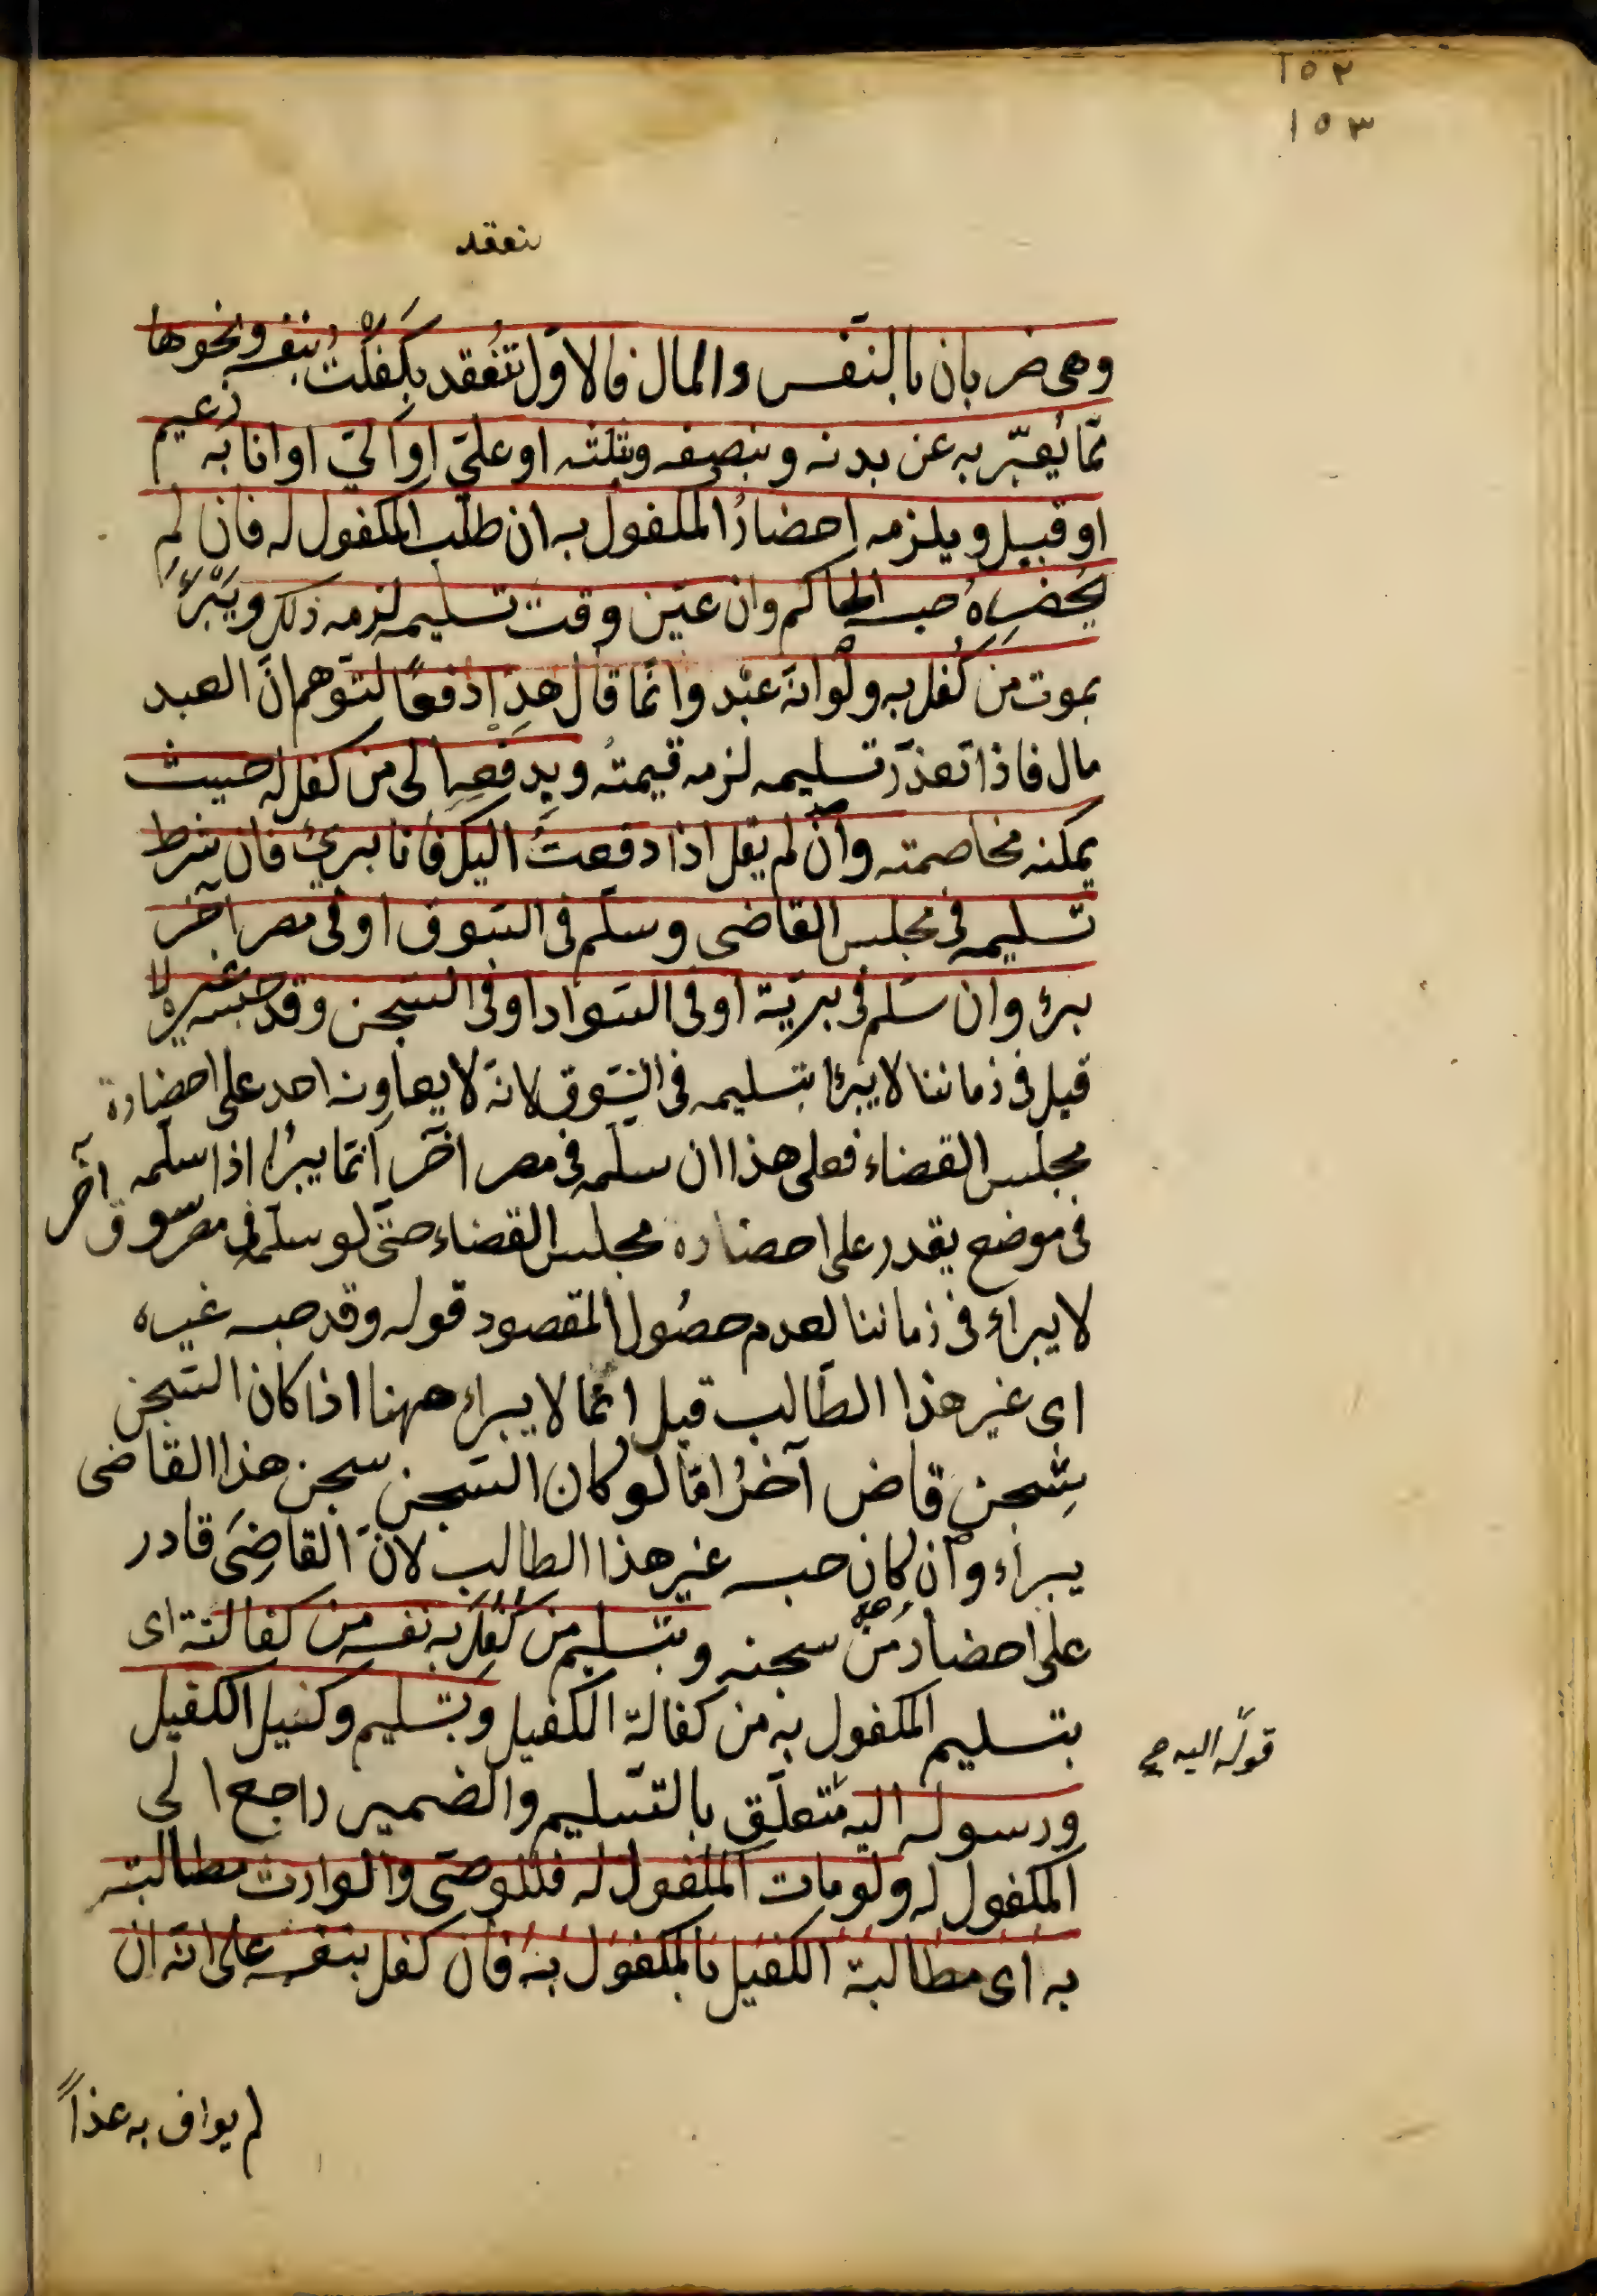 ١٥٢
١٥٣
نعقد
وهى ضربان بالنفس والمال فالاوّل تنعقد بكفلْتُ بنفسه ونحوها
ممّا يُعبّر به عن بدنه وبنصفه وبثلثه او علىّ او الىّ او انا به زعيم
او قبيل ويلزمه احضارُ المكفول به ان طلب المكفول له فان لم
يُحضرهُ حبسه الحاكم وان عيّن وقت تسليمه لزمه ذلك ويَبْرَأُ
بموت من كُفل به ولو انّه عبْد وانّما قال هذا دفعًا لتوهم انّ العبد
مال فاذا تعذّر تسليمه لزمه قيمتُه وبدفعه الى من كفل له حيث
يمكنه مخاصمته وان لم يقل اذا دفعتُ اليك فانا برئ فان شرط
تسليمه فى مجلس القاضى وسلّم فى السّوق او فى مصر آخر
برئ وان سلّم فى بريّة او فى السّواد او فى السّجن وقد حبسه غيره لا
قيل فى زماننا لا يبرأ بتسليمه فى السّوق لانّه لا يعاونه احد على احضاره
مجلس القضاء فعلى هذا ان سلّمه فى مصر آخر انّما يبرُأ اذا سلّمه
فى موضع يقدر على احضاره مجلس القضاء حتّى لو سلّمه فى سوق مصر آخر
لا يبراء فى زماننا لعدم حصُول المقصود قوله وقد حبسه غيره
اى غير هذا الطّالب قيل انما لا يبراء ههنا اذا كان السّجن
سِجن قاض آخرُ امّا لو كان السّجن سجن هذا القاضى
يبراء وان كان حبسه غير هذا الطالب لانّ القاضِىَ قادر
على احضار مَنْ سجنه وبتسليم من كُفِلَ به نفسه من كفالته اى
بتسليم المكفول به من كفالة الكفيل وبتسليم وكيل الكفيل
ورسوله اليه متعلّق بالتّسليم والضمير راجع الى
المكفول له ولو مات المكفول له فللوصّى والوارث مطالبته
به اى مطالبة الكفيل بالمكفول به فان كفل بنفسه على انّه ان
قوله اليه
لم يواف به غداً